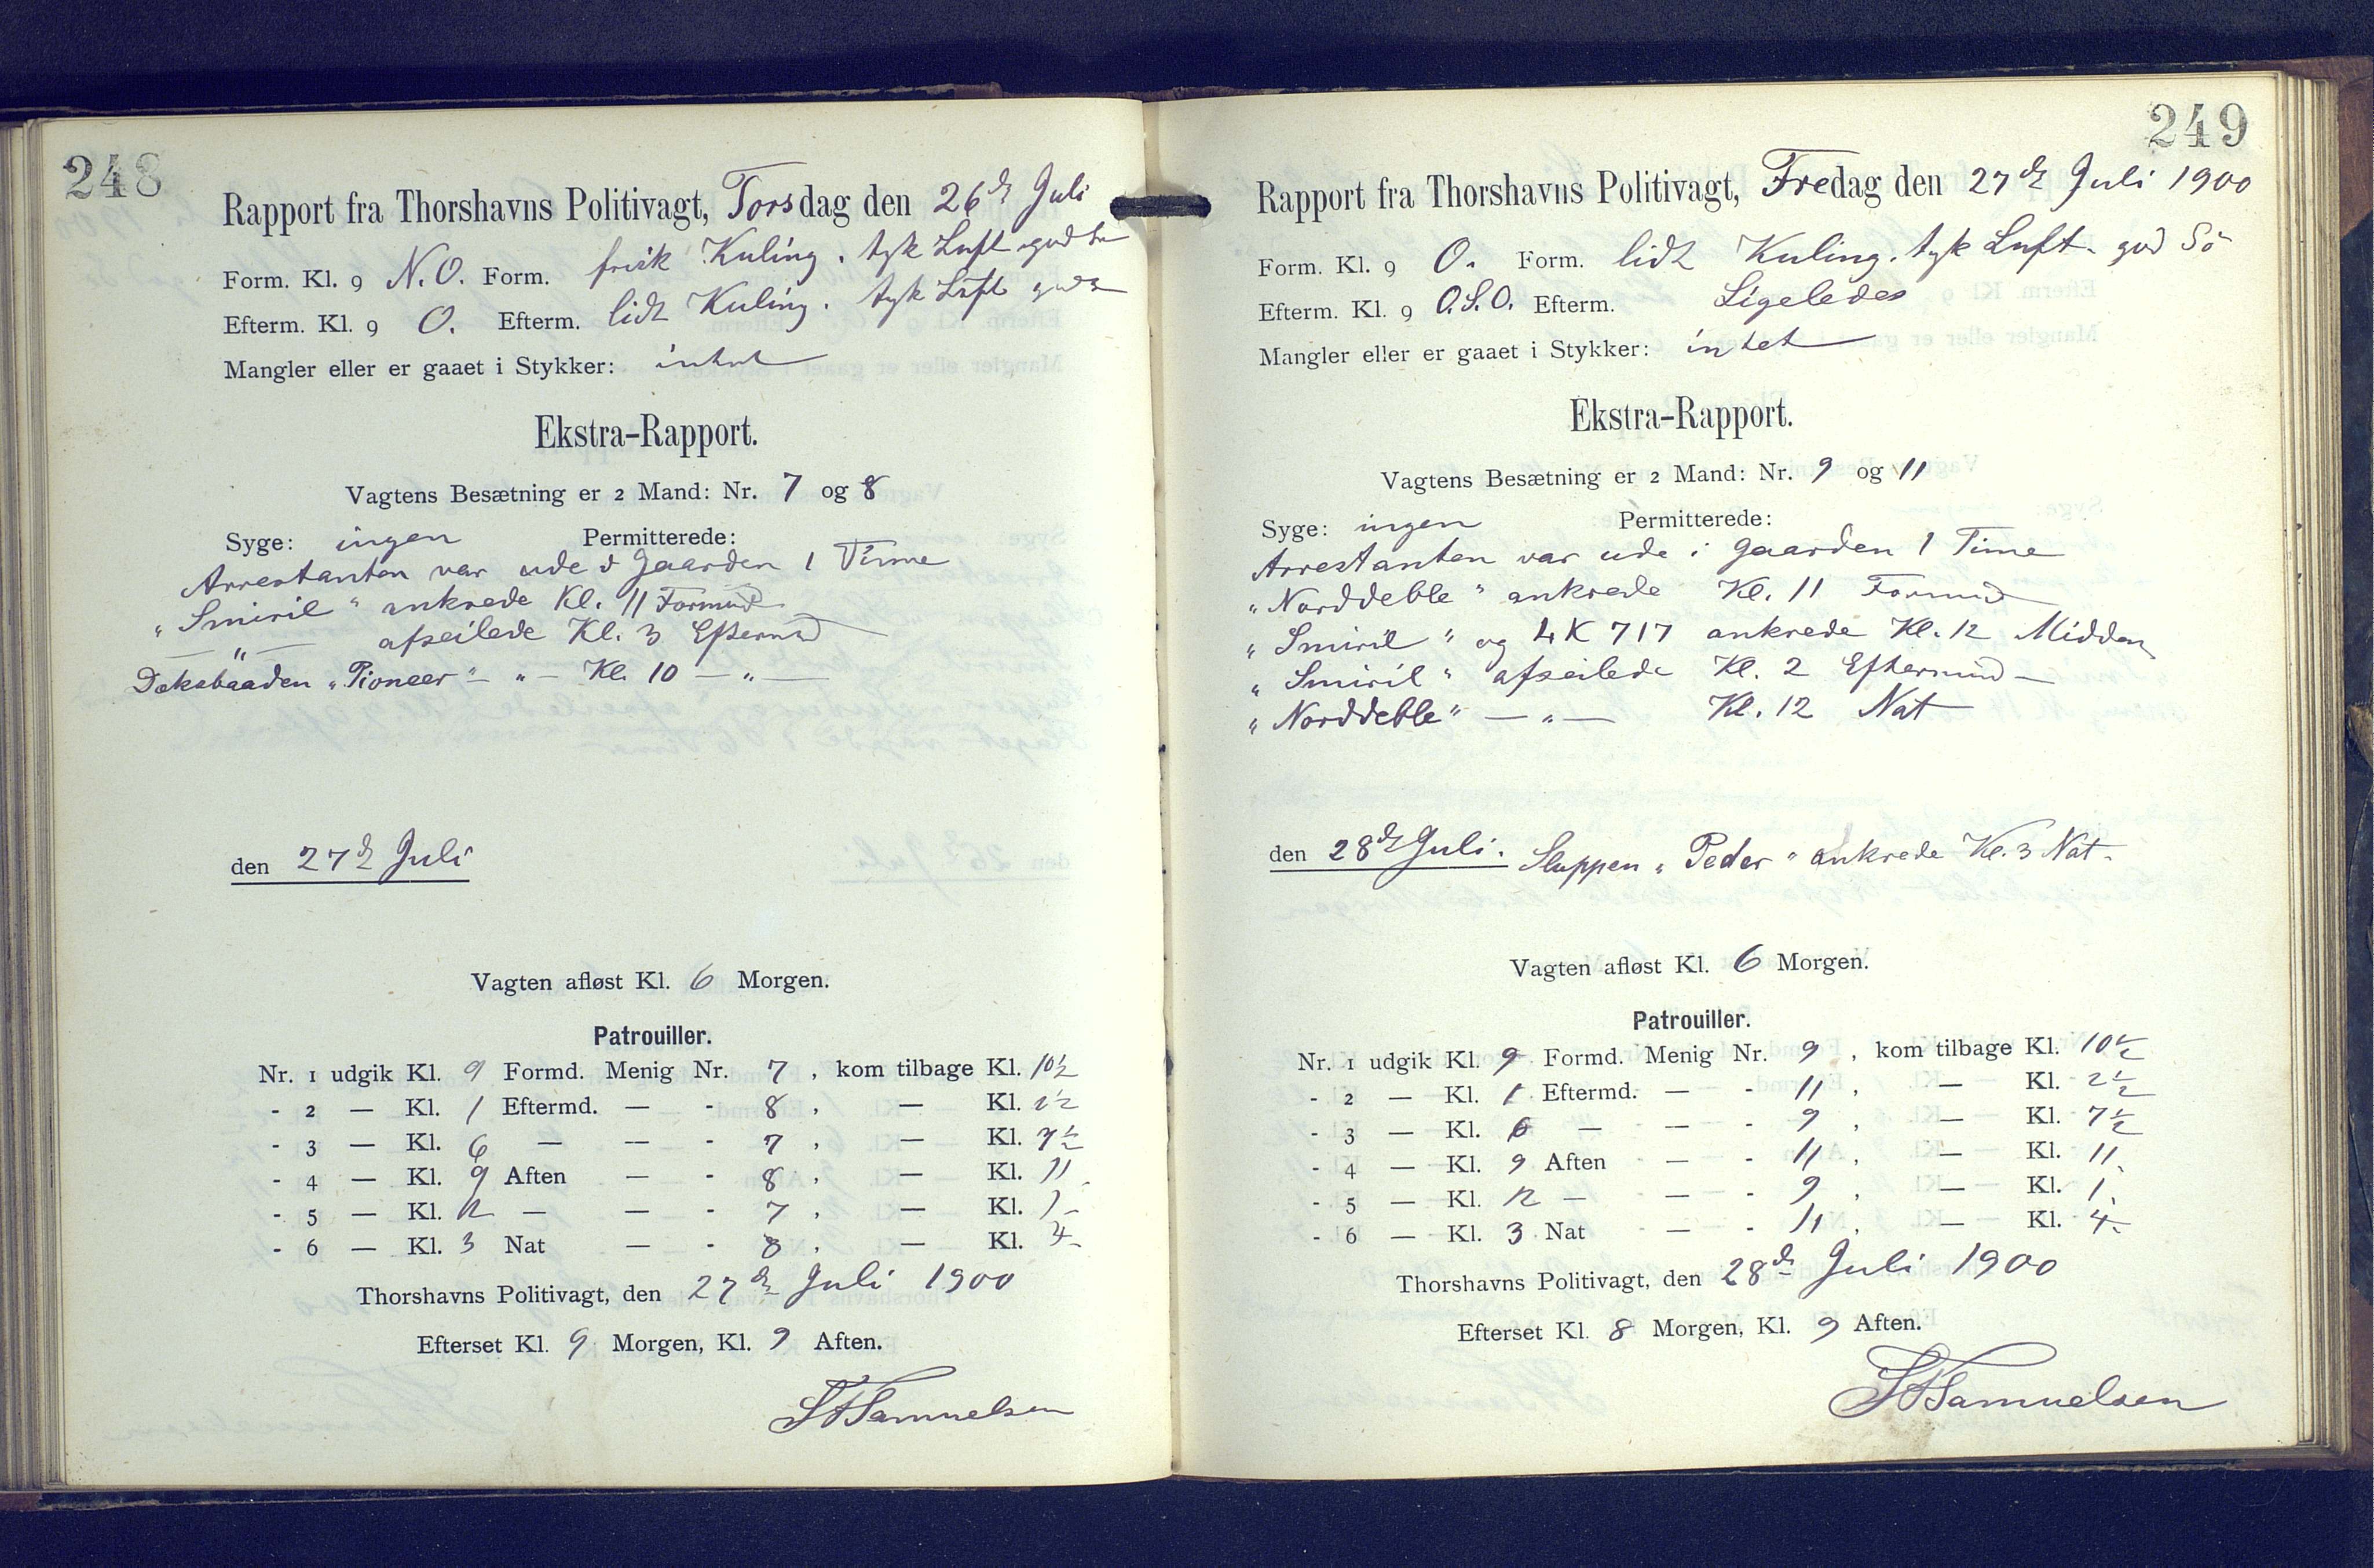 248
Rapport fra Thorshavns Politivagt, Torsdag den 26d Juli
Form. Kl. 9 N.O. Form. frisk Kuling. tyk Luft god Sø
Efterm. Kl. 9 O. Efterm. lidt Kuling. tyk Luft god Sø
Mangler eller er gaaet i Stykker: intet
Ekstra-Rapport.
Vagtens Besætning er 2 Mand: Nr. 7 og 8
Syge: ingen Permitterede:
Arrestanten var ude i Gaarden 1 Time
"Smiril" ankrede Kl. 11 Formd
— " — afseilede Kl. 3 Eftermd
Dæksbaaden "Pioneer" — " — Kl. 10 — " —
den 27d Juli
Vagten afløst Kl. 6 Morgen.
Patrouiller.
Nr. 1 udgik Kl. 9 Formd. Menig Nr. 7, kom tilbage Kl. 10½
- 2 — Kl. 1 Eftermd. — - 8, — Kl. 2½
- 3 — Kl. 6 — — - 7, — Kl. 7½
- 4 — Kl. 9 Aften — - 8, — Kl. 11
- 5 — Kl. 12 — — - 7, — Kl. 1-
- 6 — Kl. 3 Nat — - 8, — Kl. 4-
Thorshavns Politivagt, den 27d Juli 1900
Efterset Kl. 9 Morgen, Kl. 9 Aften.
Samuelsen
249
Rapport fra Thorshavns Politivagt, Fredag den 27d Juli 1900
Form. Kl. 9 O. Form. lidt Kuling. tyk Luft. god Sö
Efterm. Kl. 9 O.S.O. Efterm. Ligeledes
Mangler eller er gaaet i Stykker: intet
Ekstra-Rapport.
Vagtens Besætning er 2 Mand: Nr. 9 og 11
Syge: ingen Permitterede:
Arrestanten var ude i Gaarden 1 Time
"Norddeble" ankrede Kl. 11 Formd
"Smiril" og LK 717 ankrede Kl. 12 Middag
"Smiril" afseilede Kl. 2 Eftermd —
"Norddeble" — " — Kl. 12 Nat
den 28d Juli. Sluppen "Peder" ankrede Kl. 3 Nat.
Vagten afløst Kl. 6 Morgen.
Patrouiller.
Nr. 1 udgik Kl. 9 Formd. Menig Nr. 9, kom tilbage Kl. 10½
- 2 — Kl. 1 Eftermd. — - 11, — Kl. 2½
- 3 — Kl. 6 — — - 9, — Kl. 7½
- 4 — Kl. 9 Aften — - 11, — Kl. 11.
- 5 — Kl. 12 — — - 9, — Kl. 1.
- 6 — Kl. 3 Nat — - 11, — Kl. 4-
Thorshavns Politivagt, den 28d Juli 1900
Efterset Kl. 8 Morgen, Kl. 9 Aften.
Samuelsen